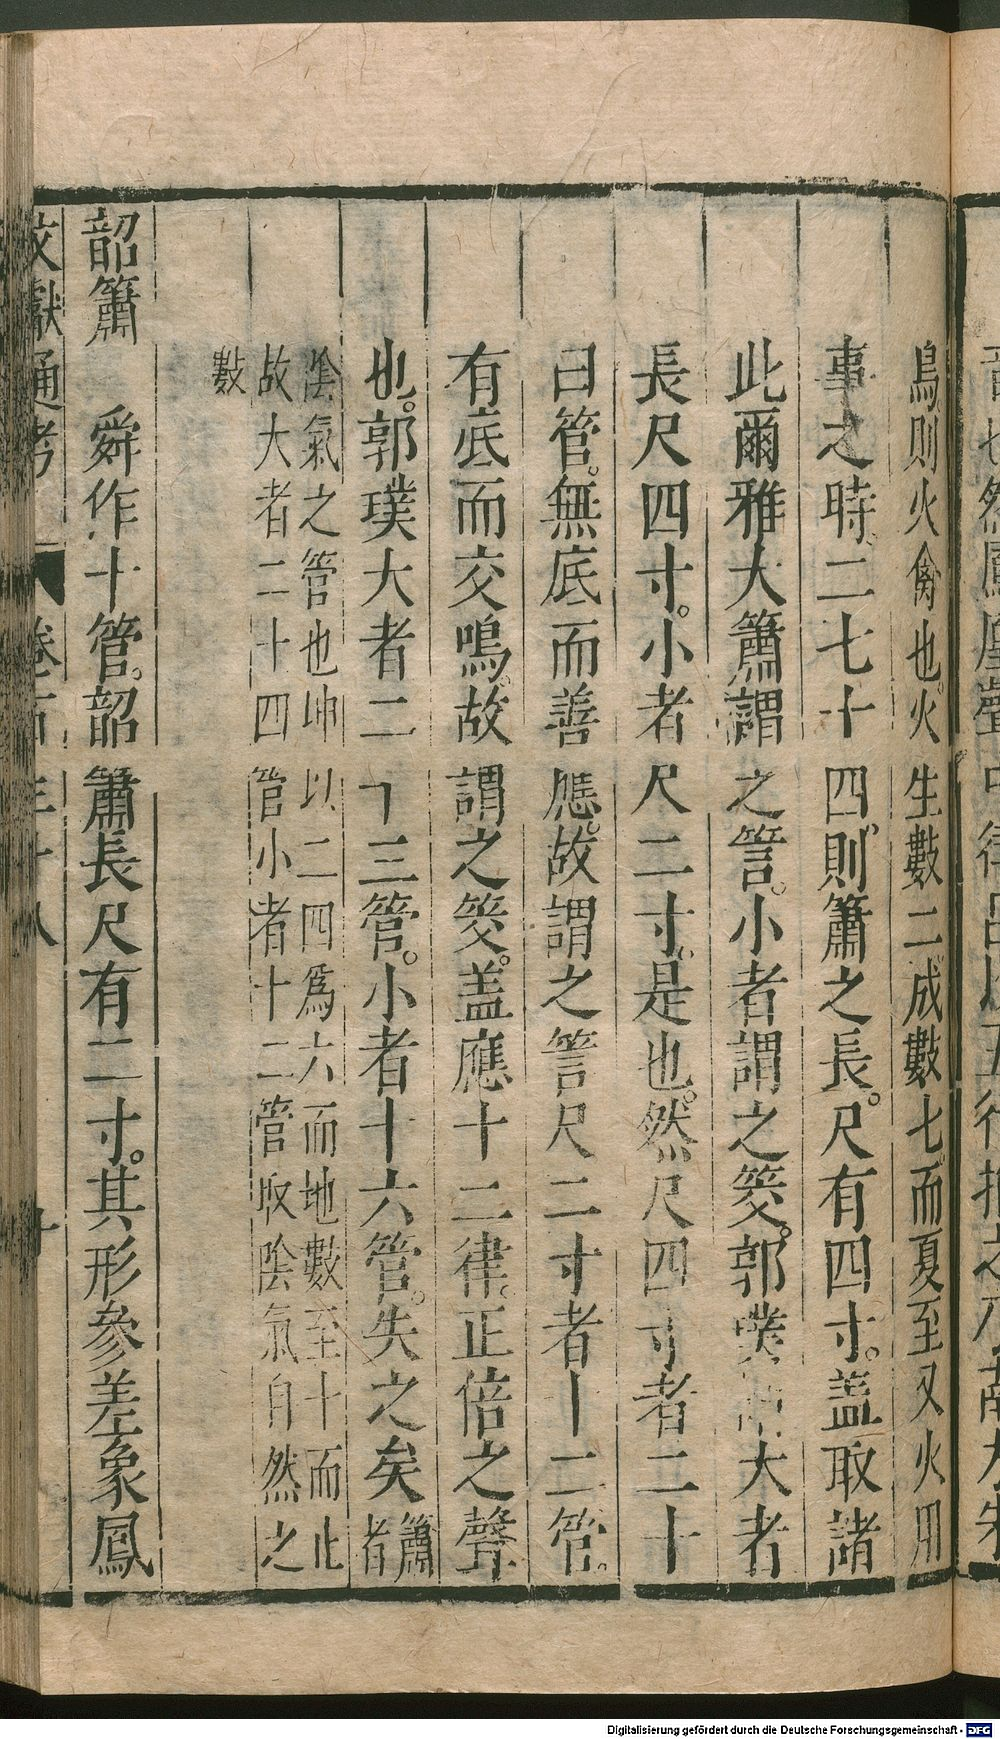 鳥則火禽也火生數二成數七而夏至又火用
事之時二七十四則簫之長尺有四寸蓋取諸
此爾雅大簫謂之管小者謂之筊郭璞大者
長尺四寸小者尺二寸是也然尺四寸者二十
曰管無底而善應故謂之管尺二寸者十二管
有底而交鳴故謂之筊盖應十二律正倍之聲
也郭璞大者二十三管小者十六管失之矣簫者
陰氣之管也坤以二四爲六而地數至十而止
故大者二十四管小者十二管取陰氣自然之
數
韶簫 舜作十管韶簫長尺有二寸其形參差象鳳
文獻通考 卷百三十八 十
Digitalisierung gefördert durch die Deutsche Forschungsgemeinschaft - DFG